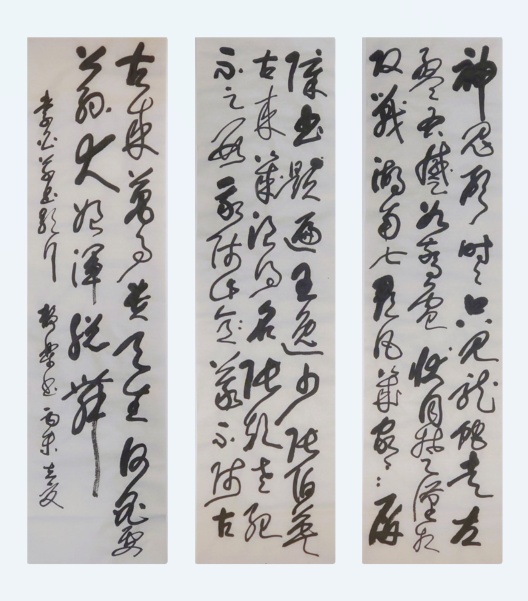 神鬼驚時時只見龍蛇走左
盤右蹙如驚電狀同楚漢相
攻戰湖南七郡凡幾家家〻屏
障書題遍王逸少張伯英
古來幾浪得名張顛老死
不足數我師此義不師古
古來萬事貴天生何必要
公孫大娘渾脫舞
李白草書歌行